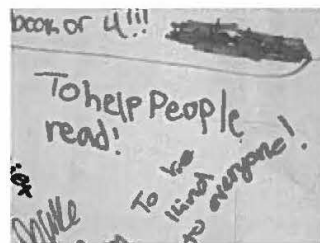 book or u!!!
To help People
read!
To be
kind
to everyone!